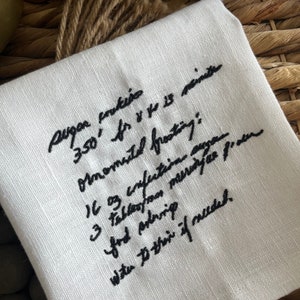 sugar cookies
350° for 8 to 13 minutes
ornamental frosting:
16 oz confection sugar
3 tablespoons meringue powder
food coloring
water to thin if needed.